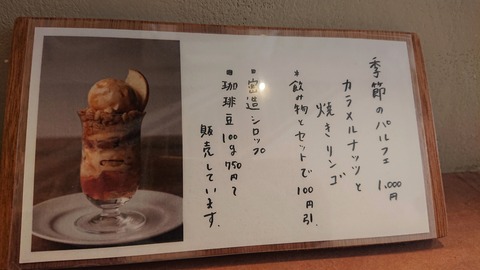 季節のパルフェ 1,000円
カラメルナッツと
焼きリンゴ
*飲み物とセットで100円引.
・密造シロップ
・珈琲豆100g 750円で
販売しています.